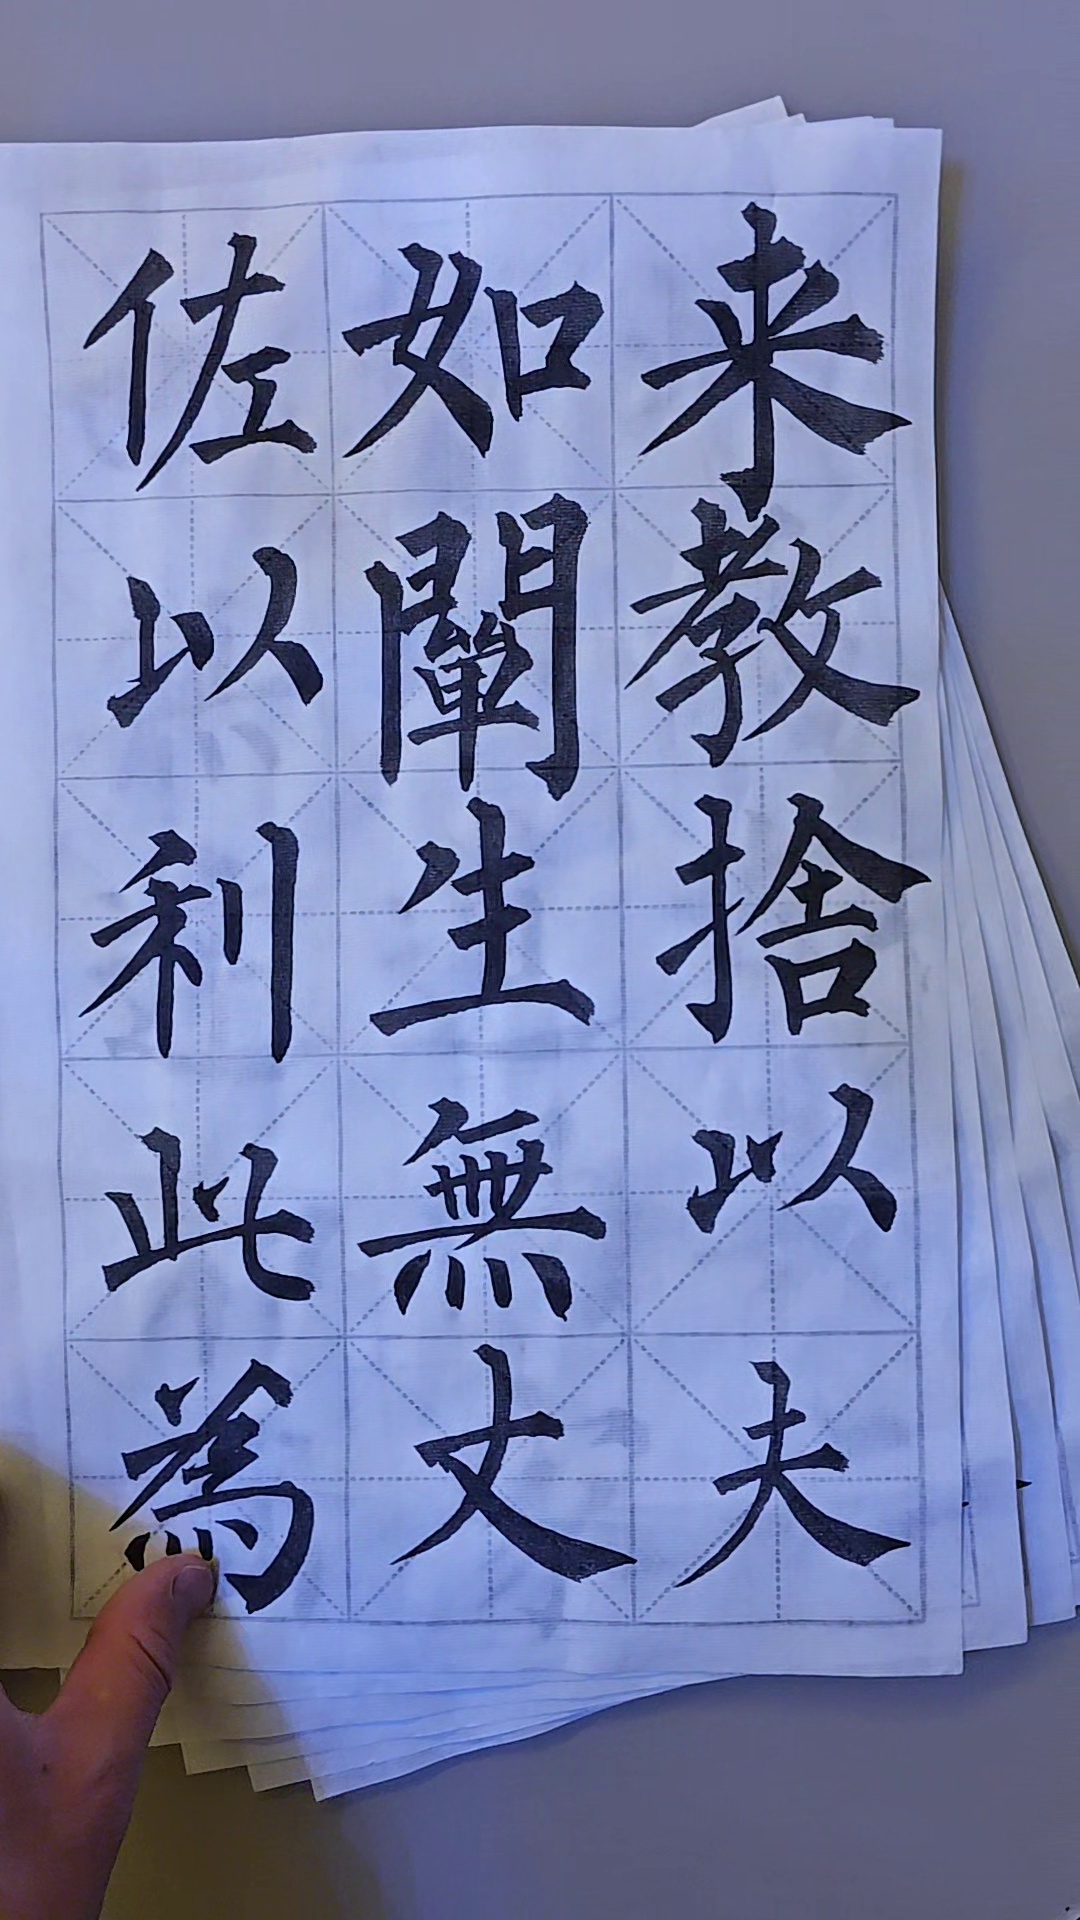 佐如来
以闡教
利生捨
此無以
為丈夫